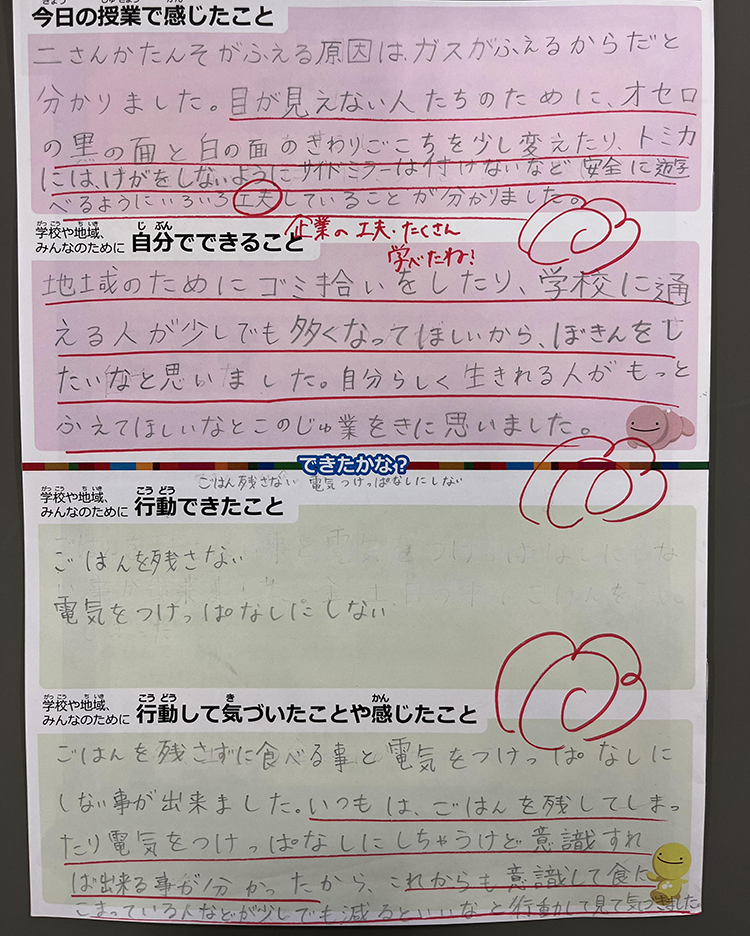 今日の授業で感じたこと
二さんかたんそがふえる原因は、ガスがふえるからだと
分かりました。目が見えない人たちのために、オセロ
の黒の面と白の面のさわりごこちを少し変えたり、トミカ
には、けがをしないようにサイドミラーは付けないなど安全に遊
べるようにいろいろ工夫していることが分かりました。
企業の工夫・たくさん
学べたね!
学校や地域、
みんなのために 自分でできること
地域のためにゴミ拾いをしたり、学校に通
える人が少しでも多くなってほしいから、ぼきんをし
たいなと思いました。自分らしく生きれる人がもっと
ふえてほしいなとこのじゅ業をきに思いました。
できたかな?
ごはん残さない 電気つけっぱなしにしない
学校や地域、
みんなのために 行動できたこと
ごはんを残さない
電気をつけっぱなしにしない
学校や地域、
みんなのために 行動して気づいたことや感じたこと
ごはんを残さずに食べる事と電気をつけっぱなしに
しない事が出来ました。いつもは、ごはんを残してしまっ
たり電気をつけっぱなしにしちゃうけど意識すれ
ば出来る事が分かったから、これからも意識して食に
こまっている人などが少しでも減るといいなと行動して見て気づきました